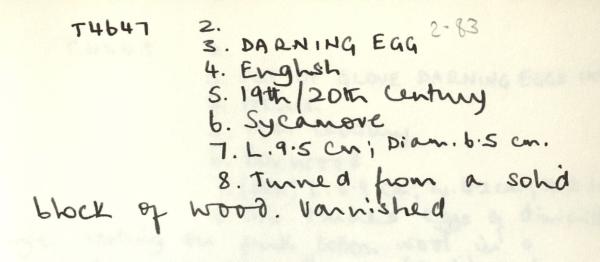 T4647 2.
2-83
3. DARNING EGG
4. English
5. 19th/20th Century
6. Sycamore
7. L. 9.5 cm; Diam. 6.5 cm.
8. Turned from a solid
block of wood. Varnished